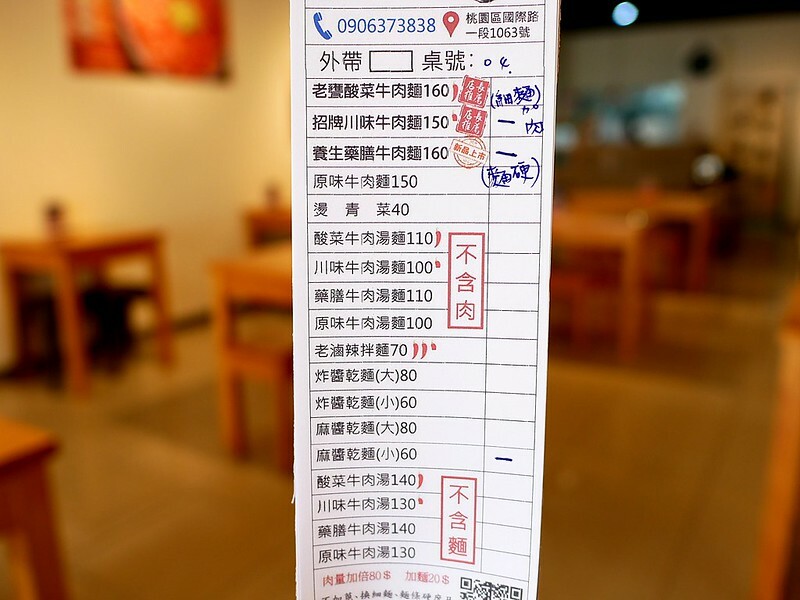 0906373838 桃園區國際路
一段1063號
外帶 桌號: 04.
老甕酸菜牛肉麵160 店長推薦 (細麵)
招牌川味牛肉麵150 店長推薦 一 加肉
養生藥膳牛肉麵160 新品上市 一
原味牛肉麵150 (麵硬)
燙青菜40
酸菜牛肉湯麵110
川味牛肉湯麵100
藥膳牛肉湯麵110
原味牛肉湯麵100
不含肉
老滷辣拌麵70
炸醬乾麵(大)80
炸醬乾麵(小)60
麻醬乾麵(大)80
麻醬乾麵(小)60 一
酸菜牛肉湯140
川味牛肉湯130
藥膳牛肉湯140
原味牛肉湯130
不含麵
肉量加倍80$ 加麵20$